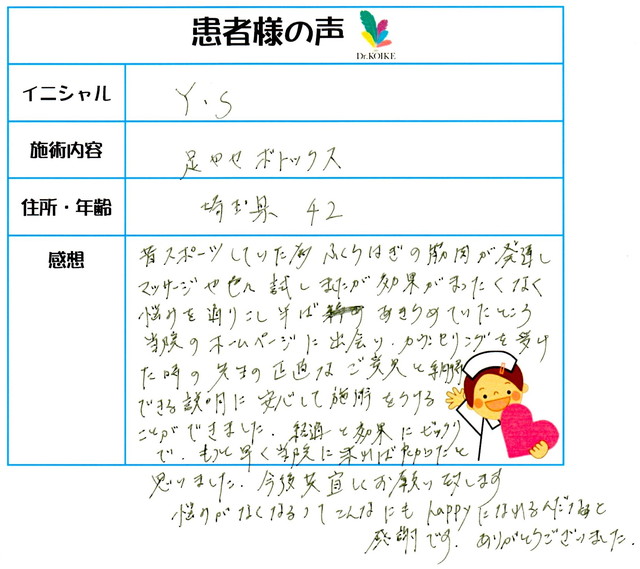 患者様の声
Dr.KOIKE
イニシャル
Y.S
施術内容
足やせ ボトックス
住所・年齢
埼玉県 42
感想
昔スポーツしていた為 ふくらはぎの筋肉が発達し
マッサージや色々試しましたが効果がまったくなく
悩みを通りこし半ば あきらめていたところ
当院のホームページに出会い、カウンセリングを受け
た時の先生の正直なご意見と納得
できる説明に安心して施術をうける
ことができました。経過と効果にビックリ
で、もっと早く当院に来ればよかったと
思いました。今後共宜しくお願い致します
悩みがなくなるってこんなにも happyになれるんだなぁと
感謝です。ありがとうございました。